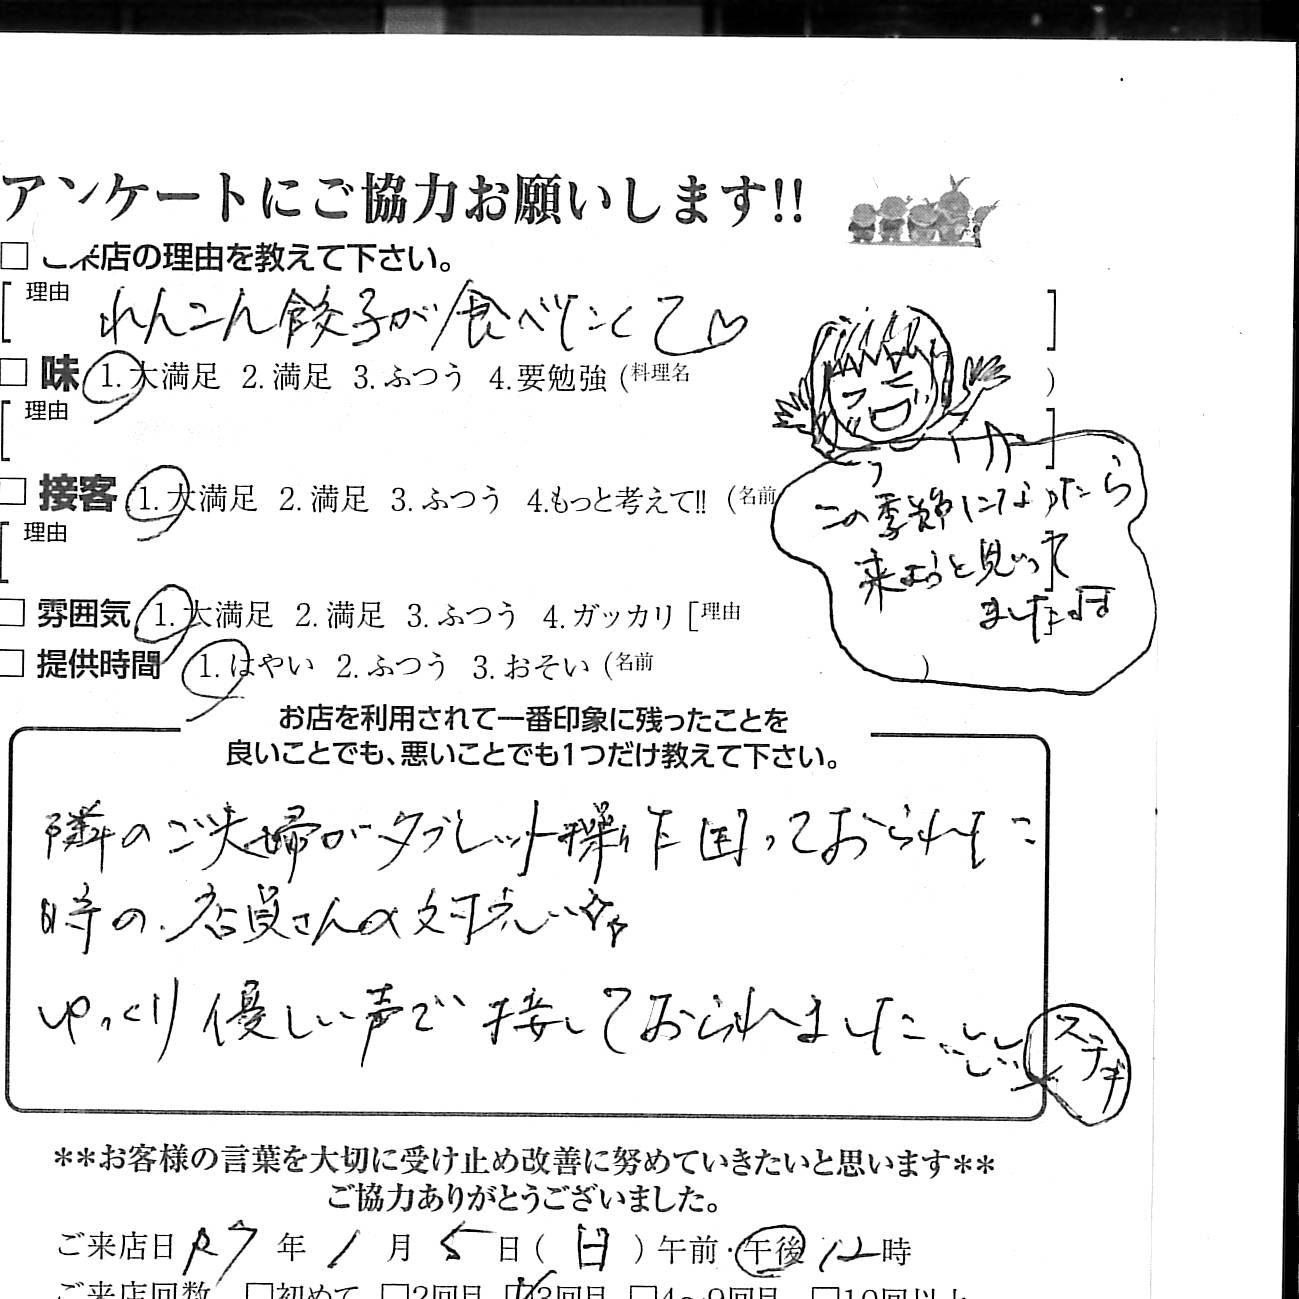 アンケートにご協力お願いします!!
□ ご来店の理由を教えて下さい。
[理由 れんこん餃子が食べたくて♡ ]
□ 味 1.大満足 2.満足 3.ふつう 4.要勉強 (料理名 )
[理由 ]
□ 接客 1.大満足 2.満足 3.ふつう 4.もっと考えて!! (名前
[理由 ]
□ 雰囲気 1.大満足 2.満足 3.ふつう 4.ガッカリ [理由
□ 提供時間 1.はやい 2.ふつう 3.おそい (名前 )
この季節になったら
来ようと思って
ました
お店を利用されて一番印象に残ったことを
良いことでも、悪いことでも1つだけ教えて下さい。
隣のご夫婦がタブレット操作困っておられた
時の、店員さんの対応
ゆっくり優しい声で接しておられました
ステキ
**お客様の言葉を大切に受け止め改善に努めていきたいと思います**
ご協力ありがとうございました。
ご来店日 R7年 1月 5日(日)午前・午後 12時
ご来店回数 □初めて □2回目 □3回目 □4〜9回目 □10回以上